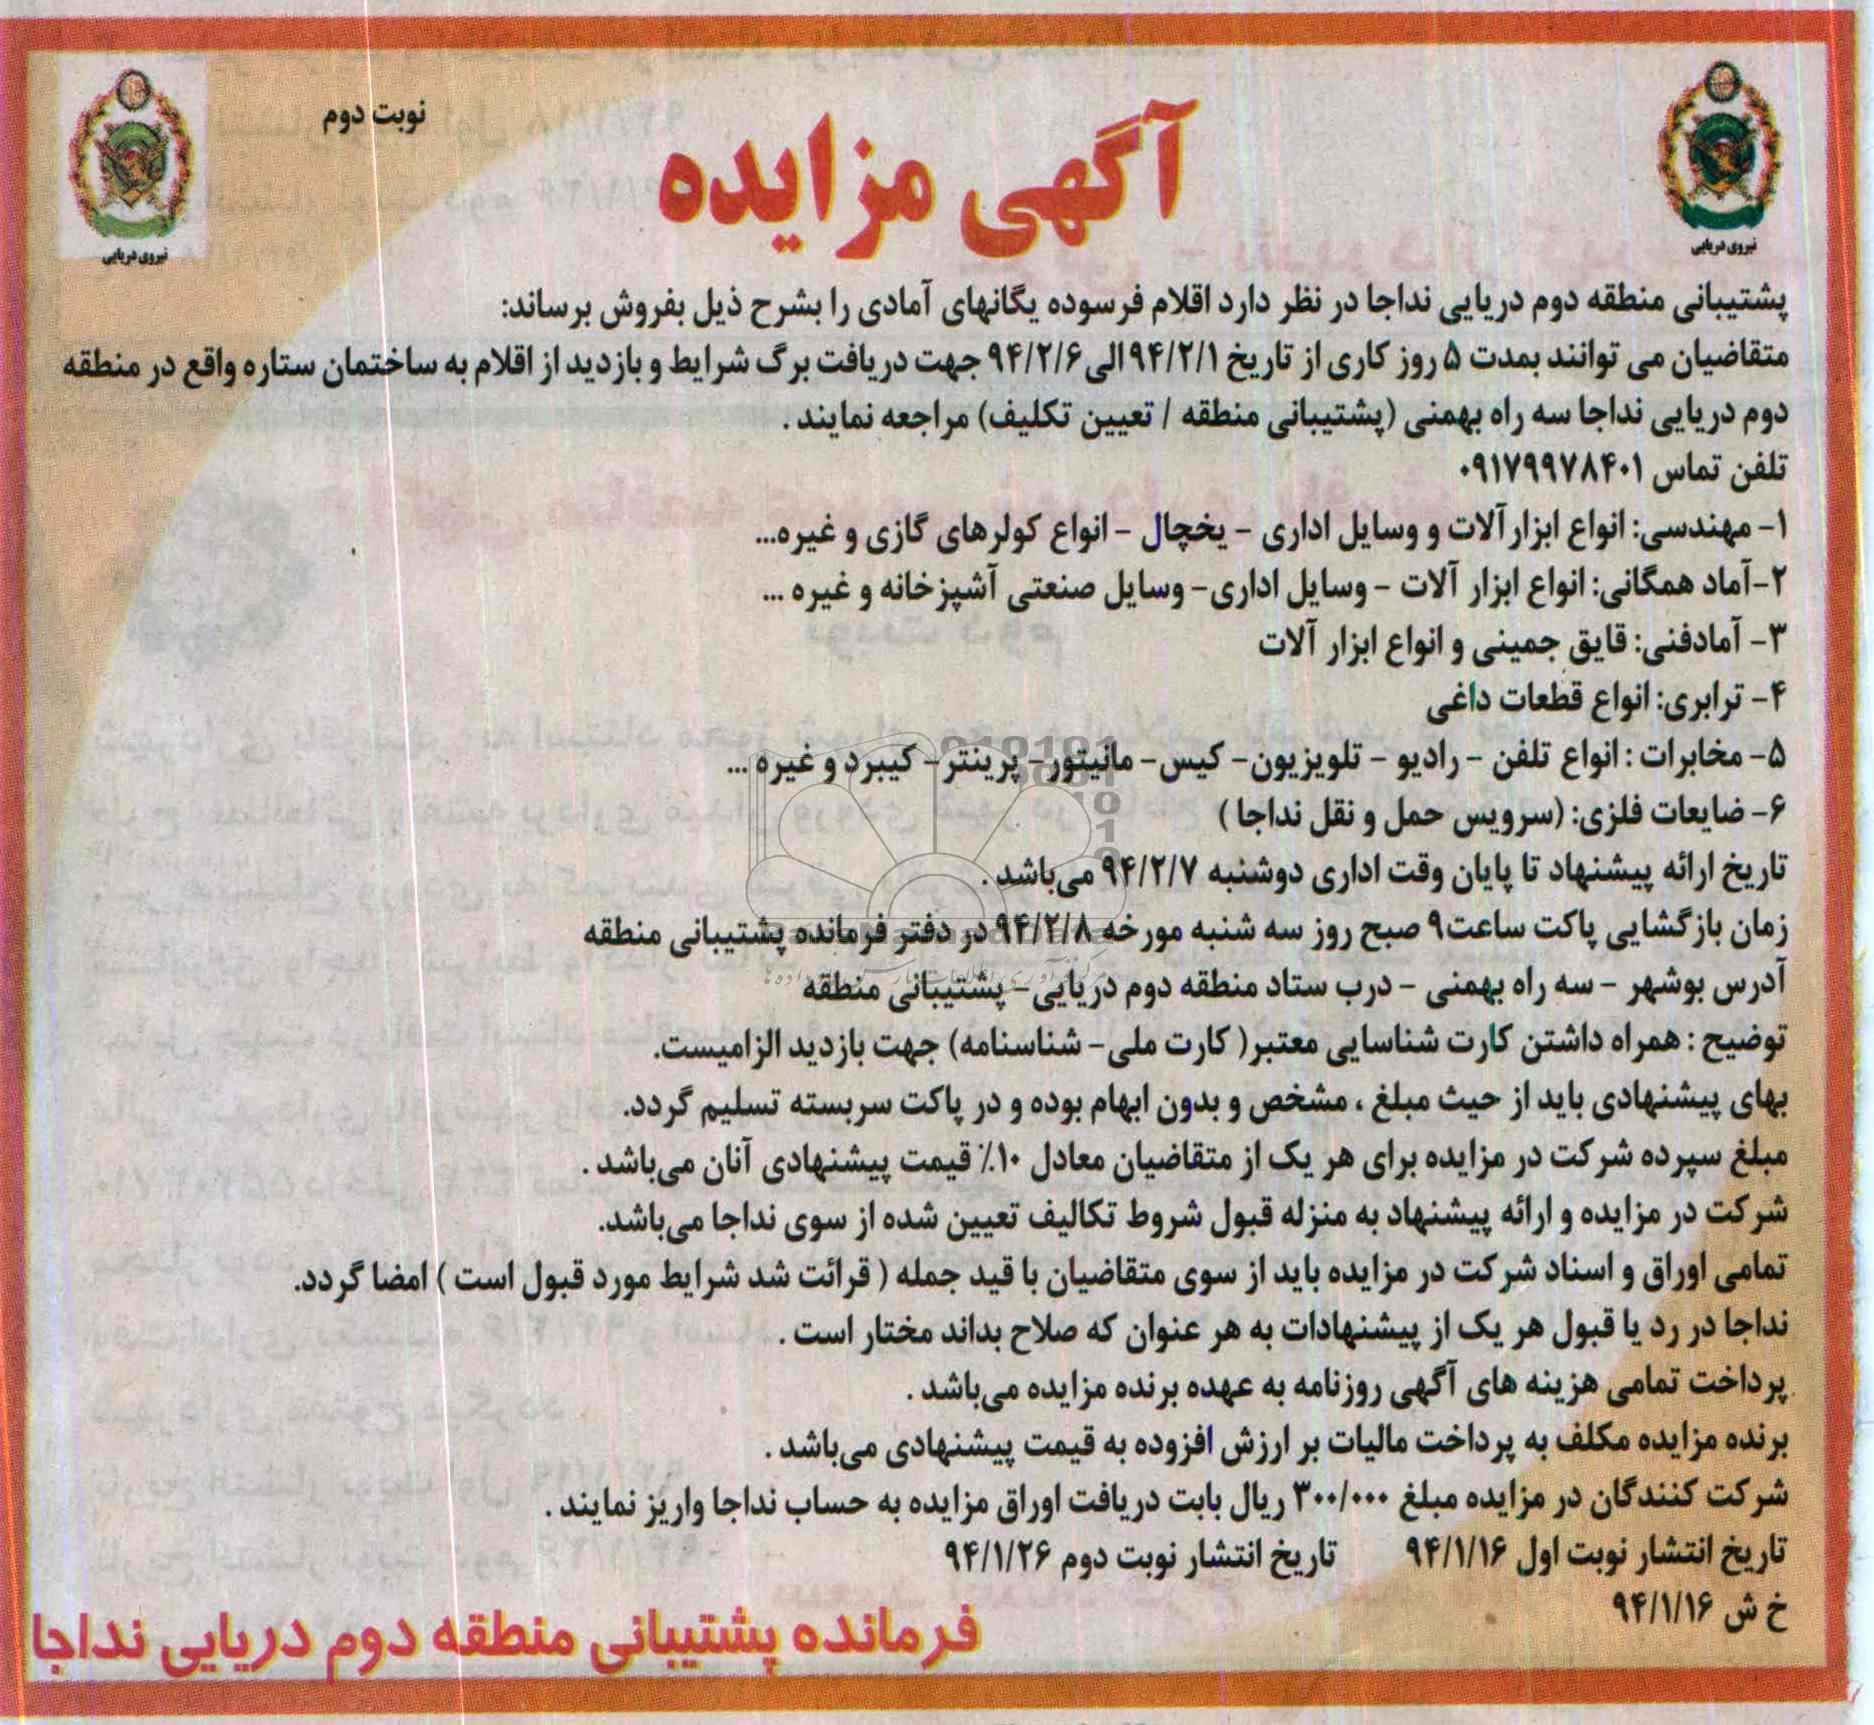 نوبت دوم
آگهی مزایده
نیروی دریایی
نیروی دریایی
پشتیبانی منطقه دوم دریایی نداجا در نظر دارد اقلام فرسوده یگانهای آمادی را بشرح ذیل بفروش برساند:
متقاضیان می توانند بمدت ۵ روز کاری از تاریخ ۹۴/۲/۱ الی ۹۴/۲/۶ جهت دریافت برگ شرایط و بازدید از اقلام به ساختمان ستاره واقع در منطقه
دوم دریایی نداجا سه راه بهمنی (پشتیبانی منطقه / تعیین تکلیف) مراجعه نمایند .
تلفن تماس ۰۹۱۷۹۹۷۸۴۰۱
۱- مهندسی: انواع ابزارآلات و وسایل اداری - یخچال - انواع کولرهای گازی و غیره...
۲-آماد همگانی: انواع ابزار آلات - وسایل اداری- وسایل صنعتی آشپزخانه و غیره ...
۳- آمادفنی: قایق جمینی و انواع ابزار آلات
۴- ترابری: انواع قطعات داغی
۵- مخابرات : انواع تلفن - رادیو - تلویزیون- کیس- مانیتور- پرینتر- کیبرد و غیره ...
۶- ضایعات فلزی: (سرویس حمل و نقل نداجا )
تاریخ ارائه پیشنهاد تا پایان وقت اداری دوشنبه ۹۴/۲/۷ می‌باشد .
زمان بازگشایی پاکت ساعت۹ صبح روز سه شنبه مورخه ۹۴/۲/۸ در دفتر فرمانده پشتیبانی منطقه
آدرس بوشهر - سه راه بهمنی - درب ستاد منطقه دوم دریایی- پشتیبانی منطقه
توضیح : همراه داشتن کارت شناسایی معتبر( کارت ملی- شناسنامه) جهت بازدید الزامیست.
بهای پیشنهادی باید از حیث مبلغ ، مشخص و بدون ابهام بوده و در پاکت سربسته تسلیم گردد.
مبلغ سپرده شرکت در مزایده برای هر یک از متقاضیان معادل ۱۰٪ قیمت پیشنهادی آنان می‌باشد .
شرکت در مزایده و ارائه پیشنهاد به منزله قبول شروط تکالیف تعیین شده از سوی نداجا می‌باشد.
تمامی اوراق و اسناد شرکت در مزایده باید از سوی متقاضیان با قید جمله ( قرائت شد شرایط مورد قبول است ) امضا گردد.
نداجا در رد یا قبول هر یک از پیشنهادات به هر عنوان که صلاح بداند مختار است .
پرداخت تمامی هزینه های آگهی روزنامه به عهده برنده مزایده می‌باشد .
برنده مزایده مکلف به پرداخت مالیات بر ارزش افزوده به قیمت پیشنهادی می‌باشد .
شرکت کنندگان در مزایده مبلغ ۳۰۰/۰۰۰ ریال بابت دریافت اوراق مزایده به حساب نداجا واریز نمایند .
تاریخ انتشار نوبت اول ۹۴/۱/۱۶ تاریخ انتشار نوبت دوم ۹۴/۱/۲۶
خ ش ۹۴/۱/۱۶
فرمانده پشتیبانی منطقه دوم دریایی نداجا